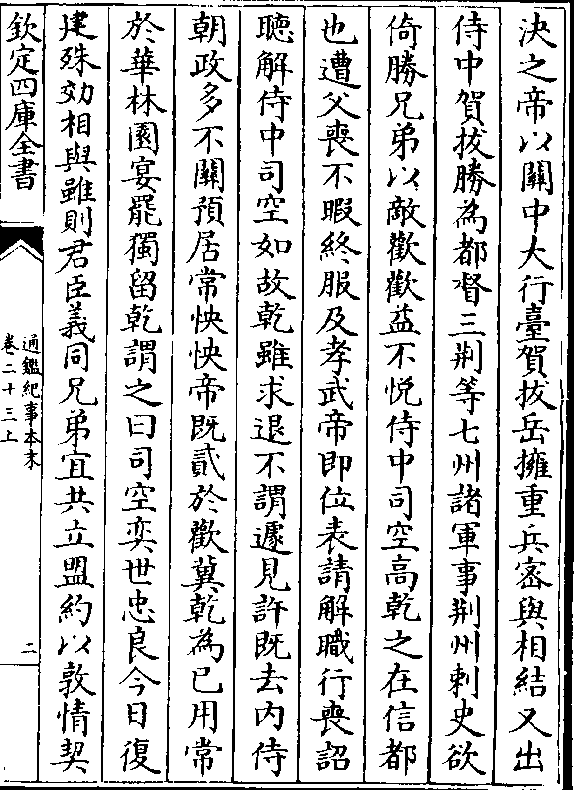 決之帝以關中大行臺賀拔岳擁重兵密與相結又出
侍中賀拔勝為都督三荆等七州諸軍事荆州刺史欲
倚勝兄弟以敵歡歡益不悦侍中司空高乾之在信都
也遭父喪不暇終服及孝武帝即位表請解職行喪詔
聽解侍中司空如故乾雖求退不謂遽見許既去内侍
朝政多不關預居常怏怏帝既貳於歡冀乾為已用常
於華林園宴罷獨留乾謂之曰司空奕世忠良今日復
建殊効相與雖則君臣義同兄弟宜共立盟約以敦情契
欽定四庫全書
通鑑紀事本末
卷二十三上
二